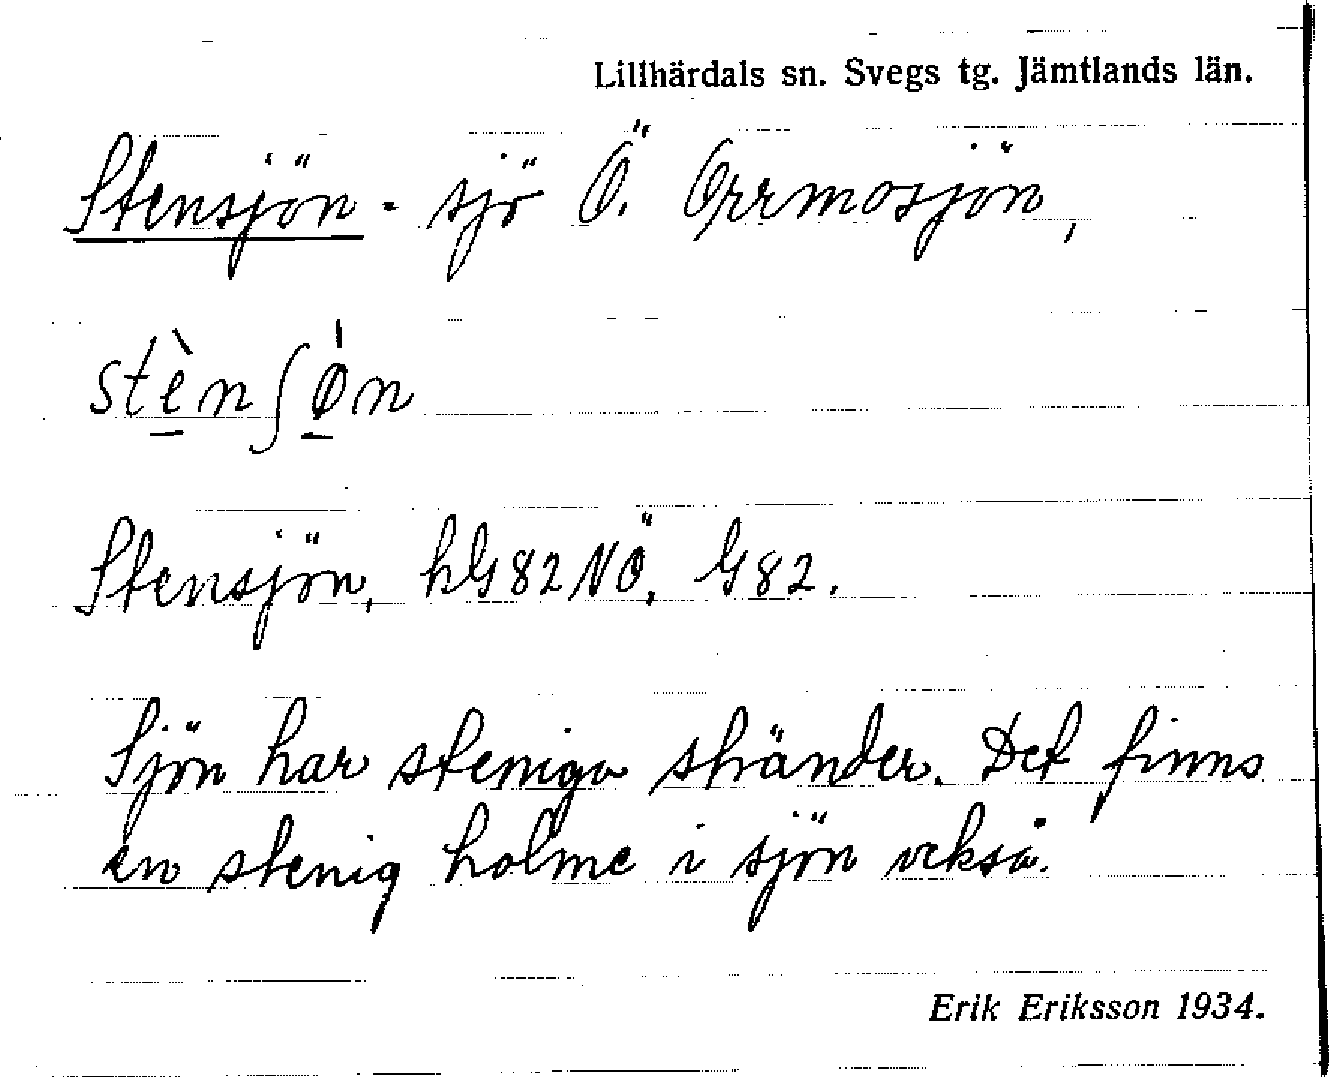 Lillhärdals sn. Svegs tg. Jämtlands län.
Stensjön - sjö Ö. Orrmosjön,
stè̠nʃø̠̍n
Stensjön, hG82NÖ, G82.
Sjön har steniga stränder. Det finns
en stenig holme i sjön också.
Erik Eriksson 1934.